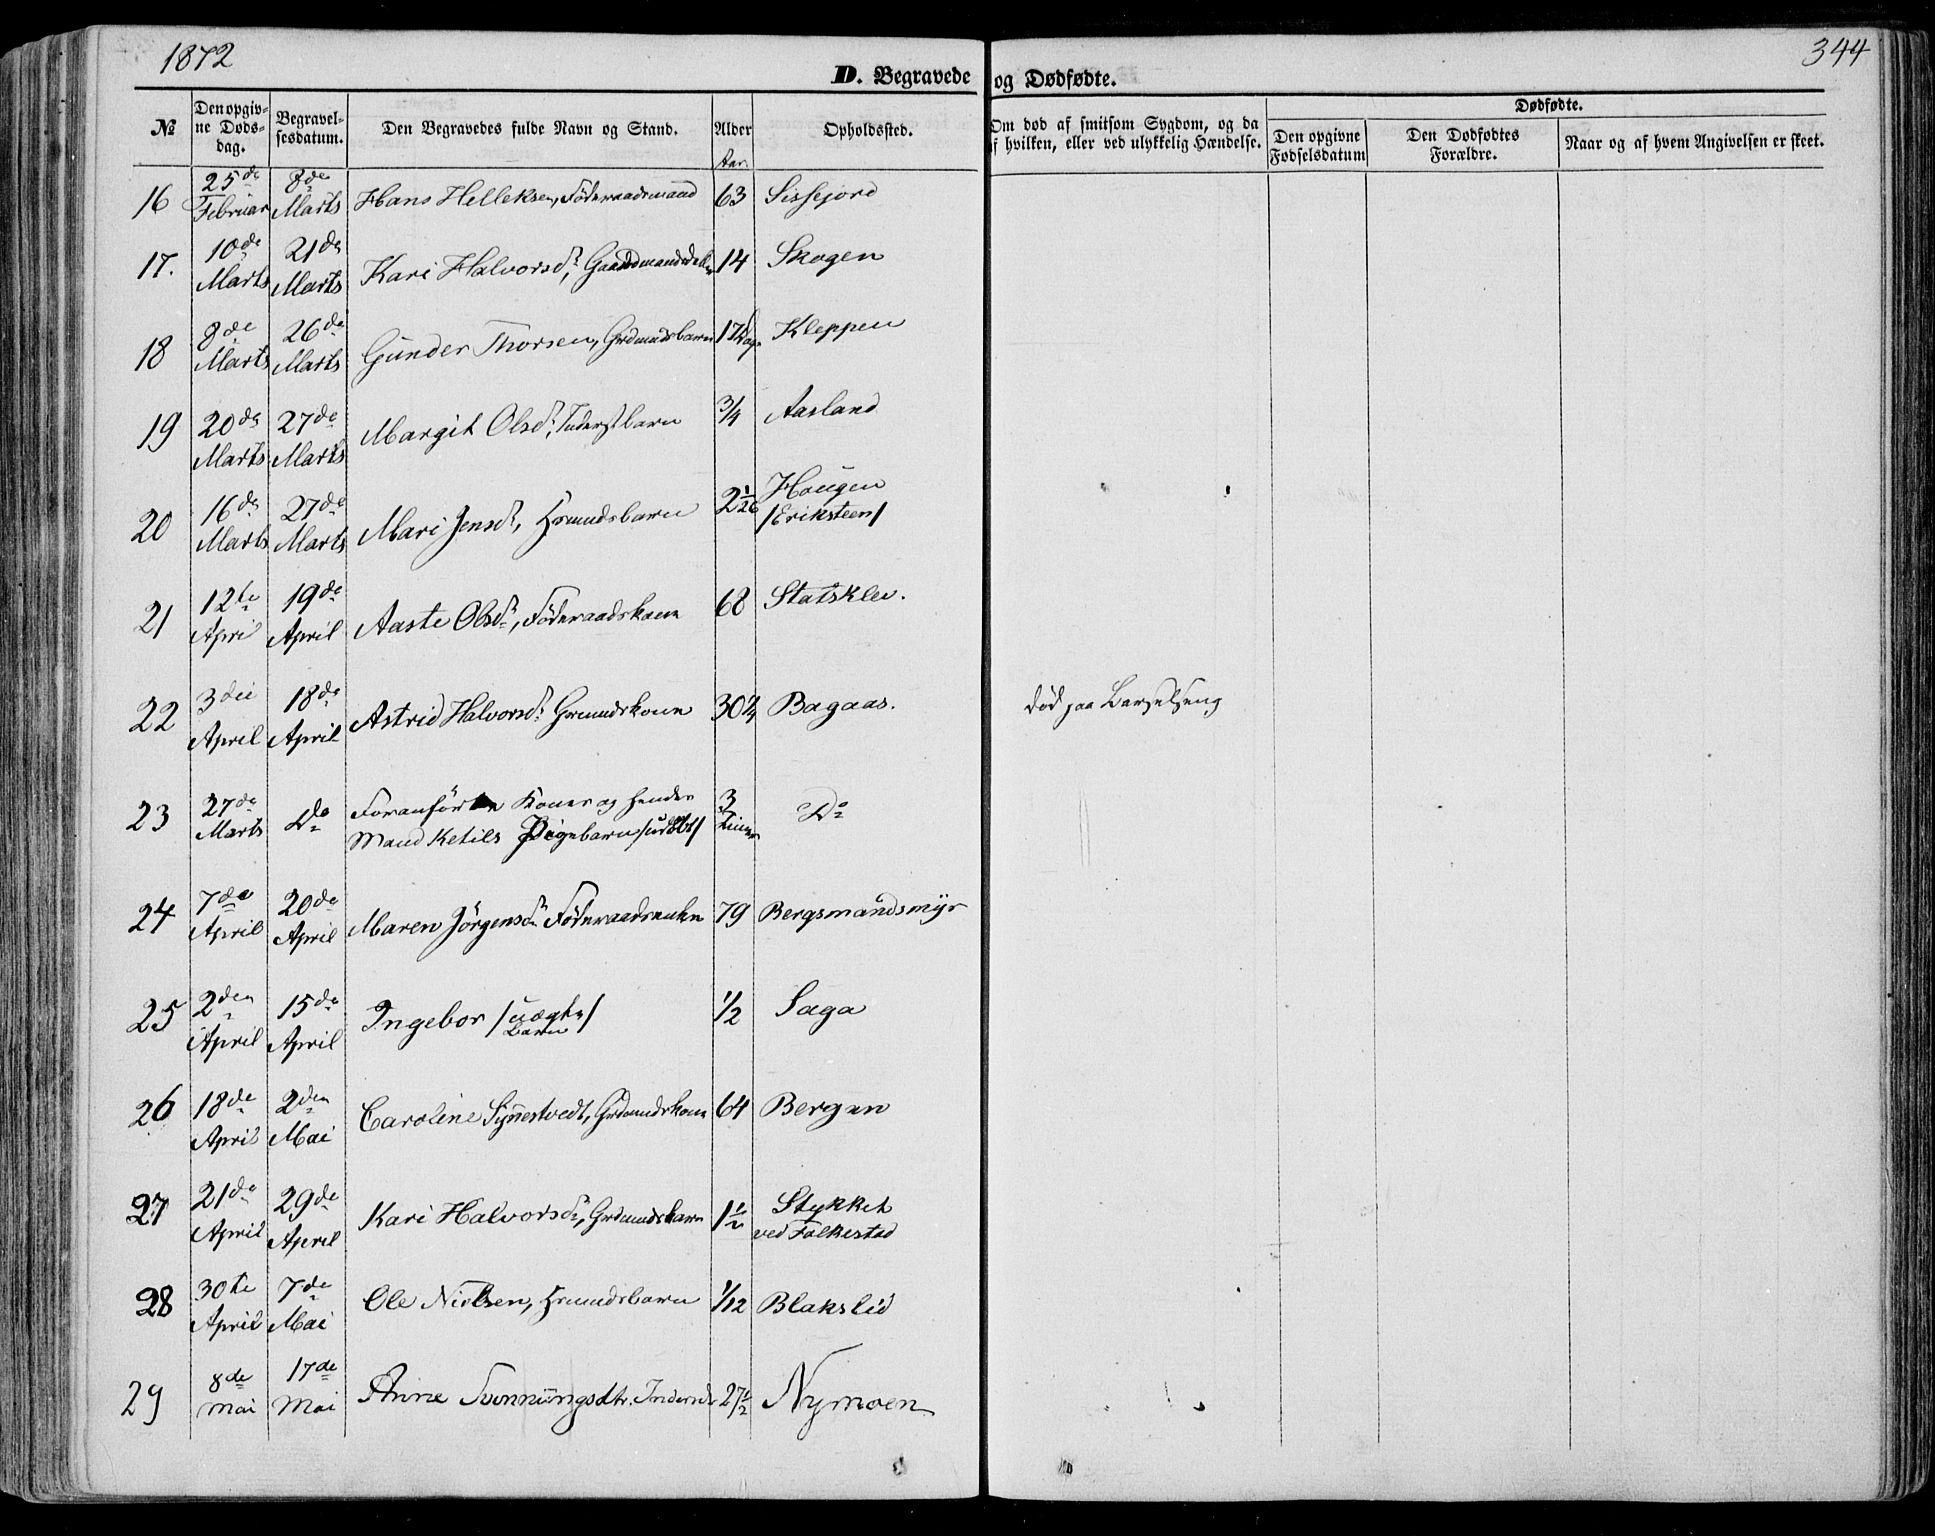 1872
344
D. Begravede og Dødfødte.
№ Den opgivne Dødsdag. Begravelsesdatum. Den Begravedes fulde Navn og Stand. Alder Opholdssted. Om død af smitsom Sygdom, og da af hvilken, eller ved ulykkelig Hændelse. Dødfødte. Den opgivne Fødselsdatum Den Dødfødtes Forældre. Naar og af hvem Angivelsen er skeet.
Aar.
16 25de Februar 8de Marts Hans Helleksen, Föderaadsmand 63 Sissejord
17. 10de Marts 21de Marts Kari Halvorsdr, 14 Skogen
18 8de Marts 26de Marts Gunder Thorsen, Grdmandsbarn 17 Dage Kleppen
19 20de Marts 27de Marts Margit Olsdr, Inderstbarn 3/4 Aasland
20 16de Marts 27de Marts Mari Jensdr, Hsmandsbarn 2 1/26 Haugen
/Eriksteen/
21 12te April 19de April Aaste Olsdr, Föderaadskone 68 Statsklev.
22 3die April 18de April Astrid Halvorsdr Grmandskone 30 Bagaas. død paa Barselseng
23 27de Marts Do Foranförte Kones og hendes 3 Do
Mand Ketils Pigebarn /udöbt/ Timer
24 7de April 20de April Maren Jörgensdr Föderaadsenke 79 Bergsmandsmyr
25 2den April 15de April Ingebor /uægte Barn/ 1/2 Saga
26 18de April 2den Mai Caroline Synnestvedt, Grdmandskone 64 Bergan
27 21de April 29de April Kari Halvorsdr, Grdmandsbarn 1 1/2 Stykket
ved Folkestad
28 30te April 7de Mai Ole Nielsen, Hsmandsbarn 1/12 Blakslid
29 8de Mai 17de Mai Anne Svennungsdtr. 27 1/2 Nymoen